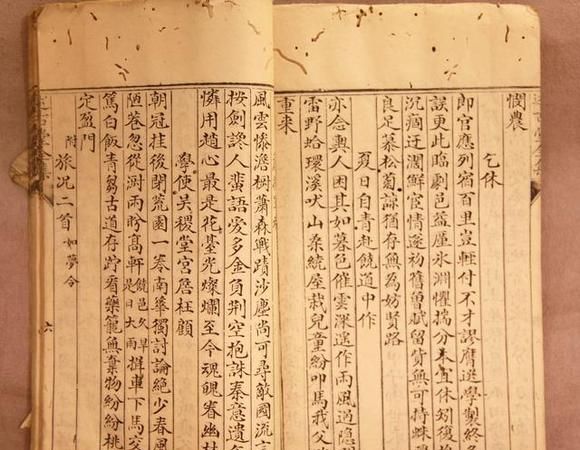 憫農
乞休
即官應列宿百里豈輕付不才謬膺選學製終多
誤更此臨劇邑益厪氷淵懼揣分未宜休矧復
沉痼迂濶鮮宦情遂初舊曽賦留貲無可持
良足慕松菊諒猶存無為妨賢路
夏日自青赴饒道中作
亦念勲人困其如暮色催雲深遥作雨風過隐
雷野蛤環溪吠山桑繞屋栽兒童紛叩馬我父
重来
風雲慘澹樹蕭森戰蹟沙塵尚可尋敵國流言
按劍讒人蠻語愛多金負荆空抱誅秦意遺
憐用趙心最是花基光燦爛至今魂魄眷幽
學使吴稷堂宫詹枉顧
朝冠挂後閉荒園一卷南華獨討論絶少春風
陋巷忽從澍雨盼高軒饒邑久旱是日大雨揖車下馬交
篤白飯青芻古道存貯看藥籠無棄物紛紛桃
定盈門
附旅况二首如夢令
六